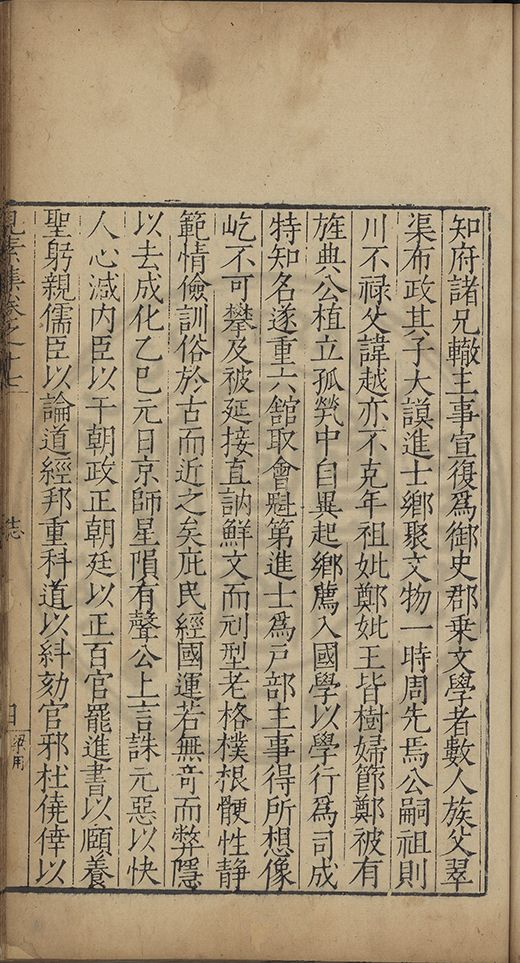 知府諸兄轍主事宣復爲御史郡乗文學者數人族父翠
渠布政其子大謨進士鄉聚文物一時周先焉公嗣祖則
川不禄父諱越亦不克年祖妣鄭妣王皆樹婦節鄭被有
旌典公植立孤煢中自異起鄉薦入國學以學行爲司成
特知名遂重六舘取會魁第進士爲戸部主事得所想像
屹不可攀及被延接直訥鮮文而刓型老格樸根骾性静
範情儉訓俗於古而近之矣庇民經國運若無竒而弊隱
以去成化乙巳元日京師星隕有聲公上言誅元惡以快
人心㓕内臣以干朝政正朝廷以正百官罷進書以頥養
聖躬親儒臣以論道經邦重科道以糾劾官邪杜僥倖以
見素集卷之十七
誌